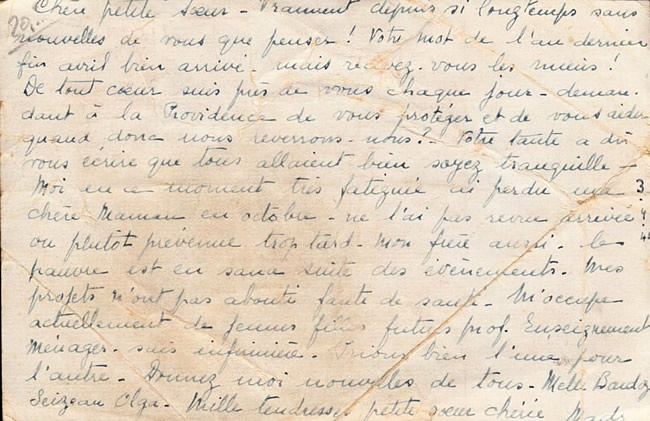 Chère petite sœur - Vraiment depuis si longtemps sans
nouvelles de vous que penser! Votre mot de l'an dernier
fin avril bien arrivé - mais recevez-vous les miens!
De tout cœur suis près de vous chaque jour - deman-
dant à la Providence de vous protéger et de vous aider
quand donc nous reverrons-nous? - Votre tante a dû
vous écrire que tous allaient bien soyez tranquille -
Moi en ce moment très fatiguée ai perdu ma
chère Maman en octobre - ne l'ai pas revu arrivée
ou plutôt prévenue trop tard - Mon frère aussi - le
pauvre est en sana suite des évènements - Mes
projets n'ont pas abouti faute de santé - M'occupe
actuellement de jeunes filles futures prof. Enseignement
Ménager - suis infirmière - Prions bien l'une pour
l'autre - Donnez moi nouvelles de tous - Melle
Olga - Mille tendresses petite sœur chérie